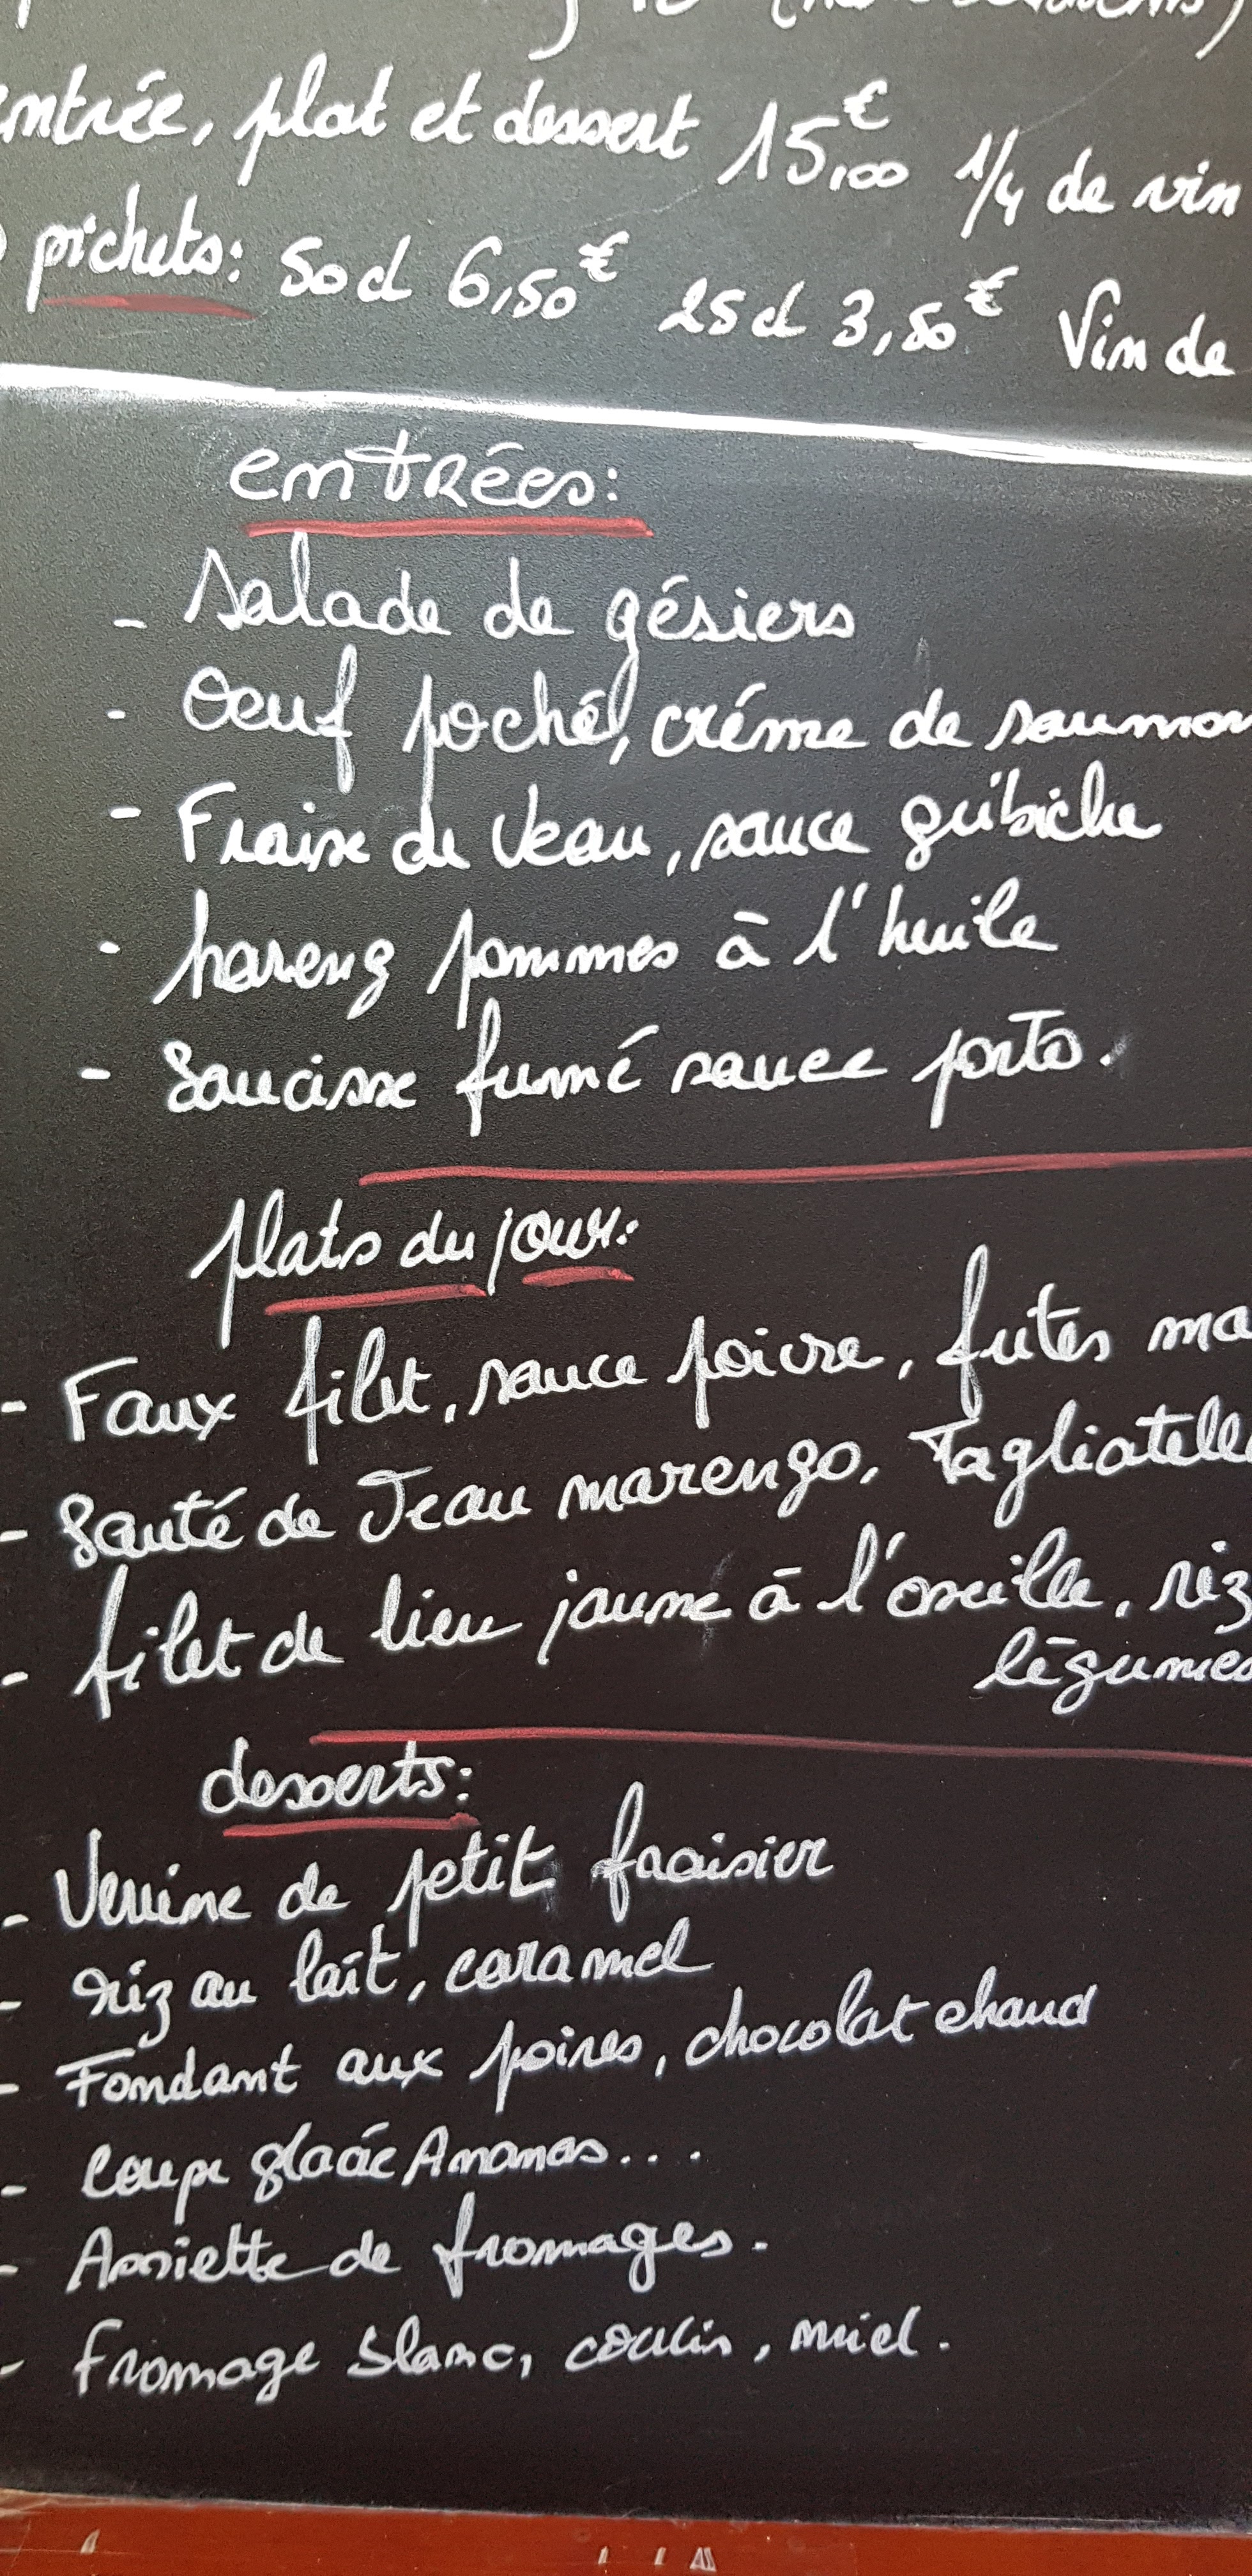 entrée, plat et dessert 15,00€ 1/4 de vin
pichets: 50cl 6,50€ 25cl 3,50€ Vin de
entrées:
- Salade de gésiers
- Oeuf poché, créme de saumon
- Fraise de Veau, sauce guibiche
- hareng pommes à l'huile
- Saucisse fumé sauce porto.
plats du jour:
- Faux filet, sauce poivre, frites ma
- Sauté de Veau marengo, Tagliatelle
- filet de lieu jaune à l'oseille, riz
légumes
desserts:
- Verrine de petit fraisier
- riz au lait, caramel
- Fondant aux poires, chocolat chaud
- Coupe glacée Ananas....
- Assiette de fromages.
- Fromage blanc, coulis, miel.